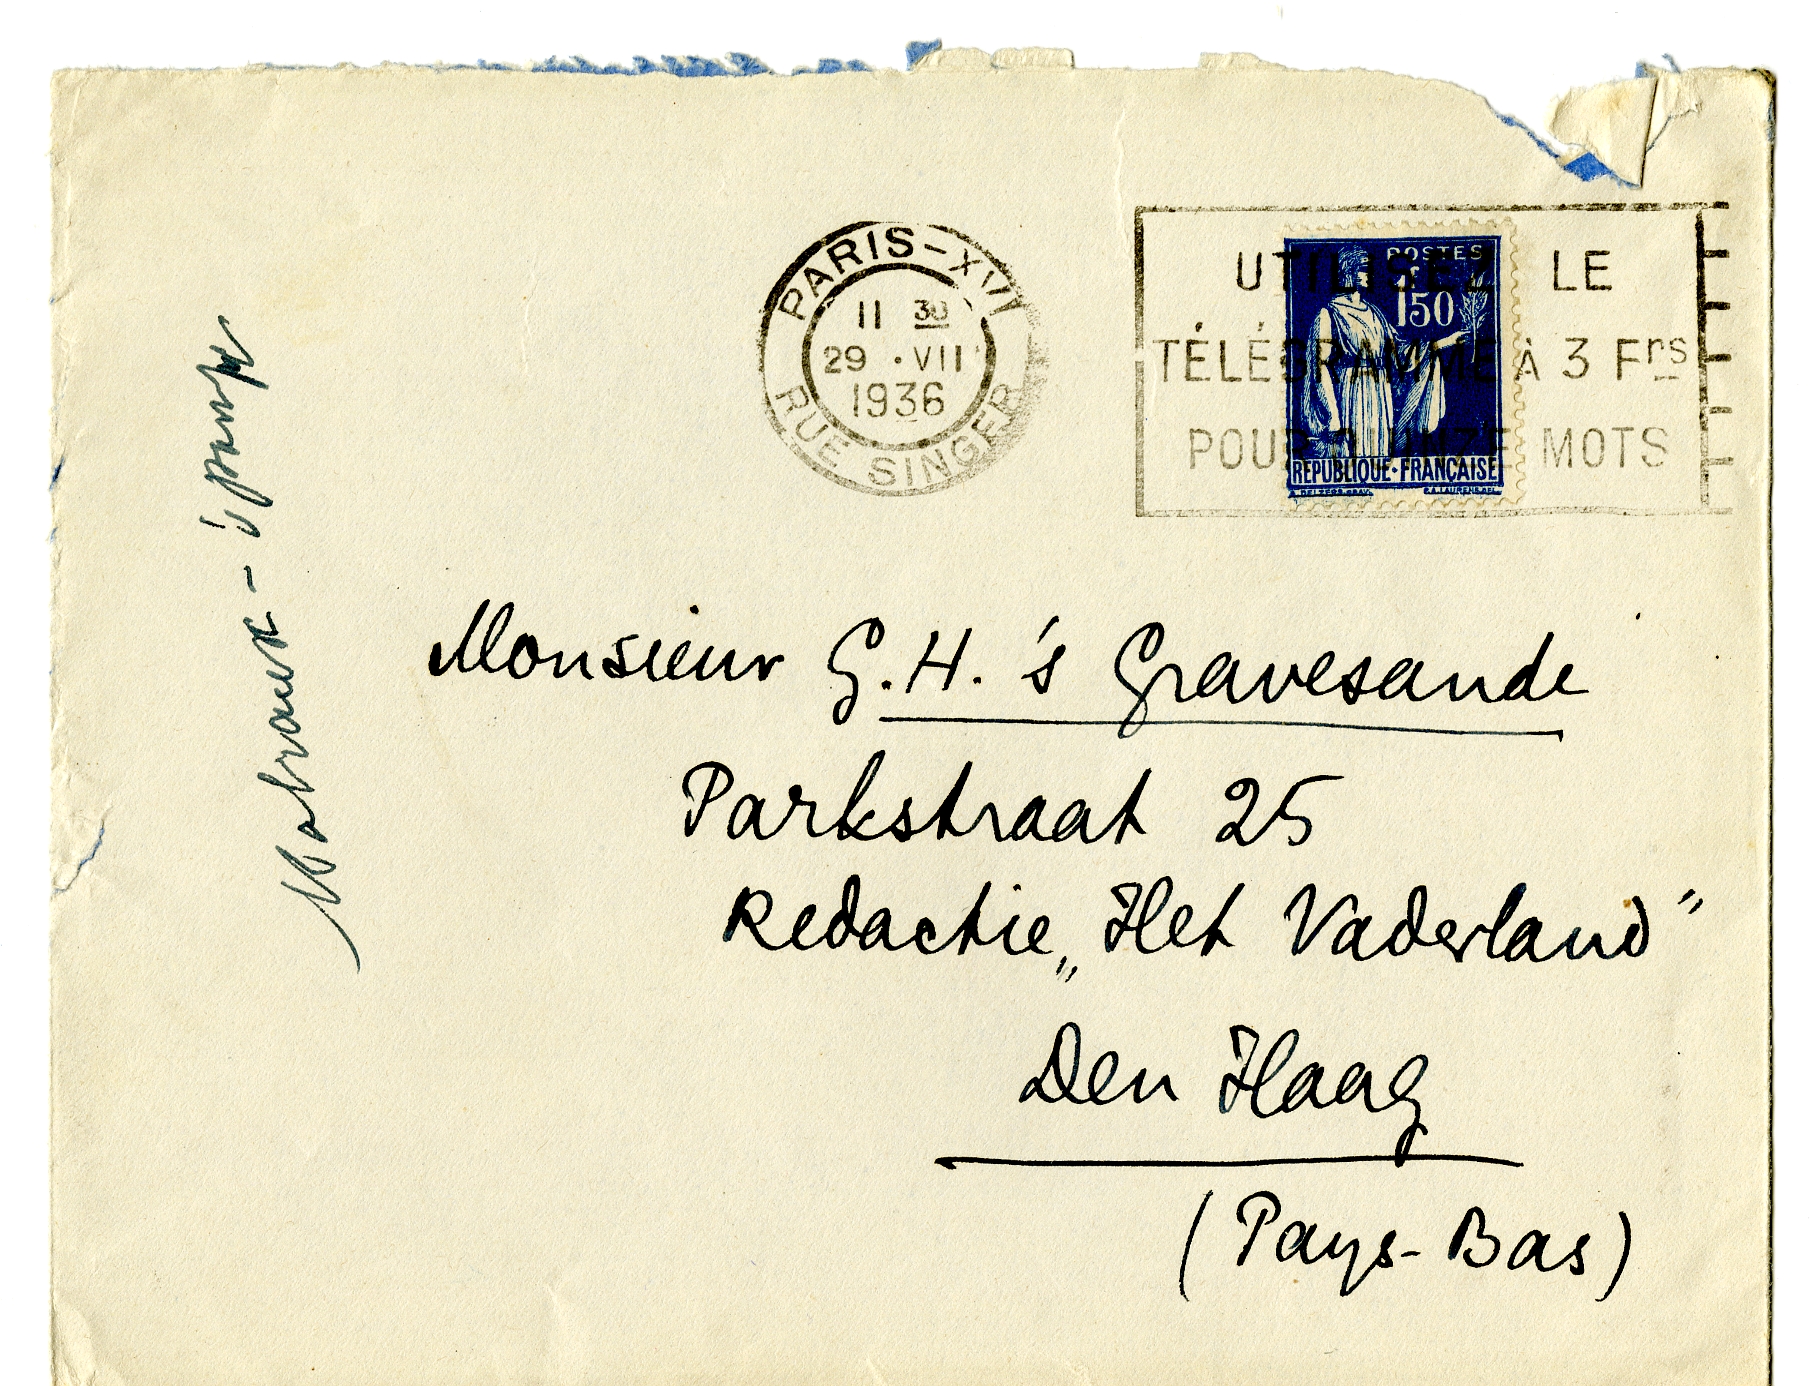 PARIS-XVI
11 30
29 ·VII
1936
RUE SINGER
UTILISEZ LE
TÉLÉGRAMME À 3 Frs
POUR QUINZE MOTS
POSTES
1F50
REPUBLIQUE·FRANÇAISE
Malraux -
Monsieur G.H. 's Gravesande
Parkstraat 25
Redactie „Het Vaderland”
Den Haag
(Pays-Bas)